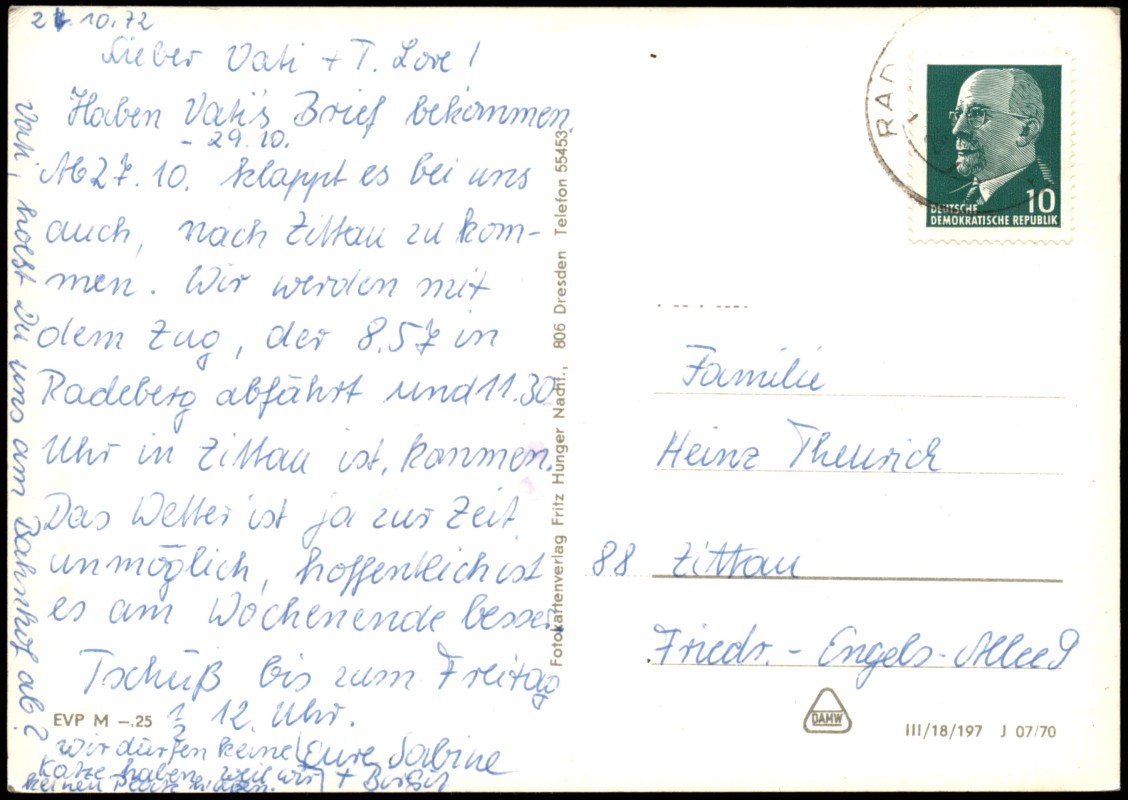 24.10.72
Lieber Vati + T. Lore!
Haben Vati's Brief bekommen.
- 29.10.
Ab 27.10. klappt es bei uns
auch, nach Zittau zu kom-
men. Wir werden mit
dem Zug, der 8.57 in
Radeberg abfährt und 11.30
Uhr in Zittau ist, kommen.
Das Wetter ist ja zur Zeit
unmöglich, hoffentlich ist
es am Wochenende besser.
Tschüß bis zum Freitag
1/2 12 Uhr.
Eure Sabine
+ Birgit
wir dürfen keine
Katze haben, weil wir
keinen
Vati, holst Du uns am Bahnhof ab?
EVP M –.25
Fotokartenverlag Fritz Hunger Nachf., 806 Dresden Telefon 55453
RAD
10
DEUTSCHE
DEMOKRATISCHE REPUBLIK
Familie
Heinz Theurich
88 Zittau
Friedr.-Engels-Allee 9
DAMW
III/18/197 J 07/70